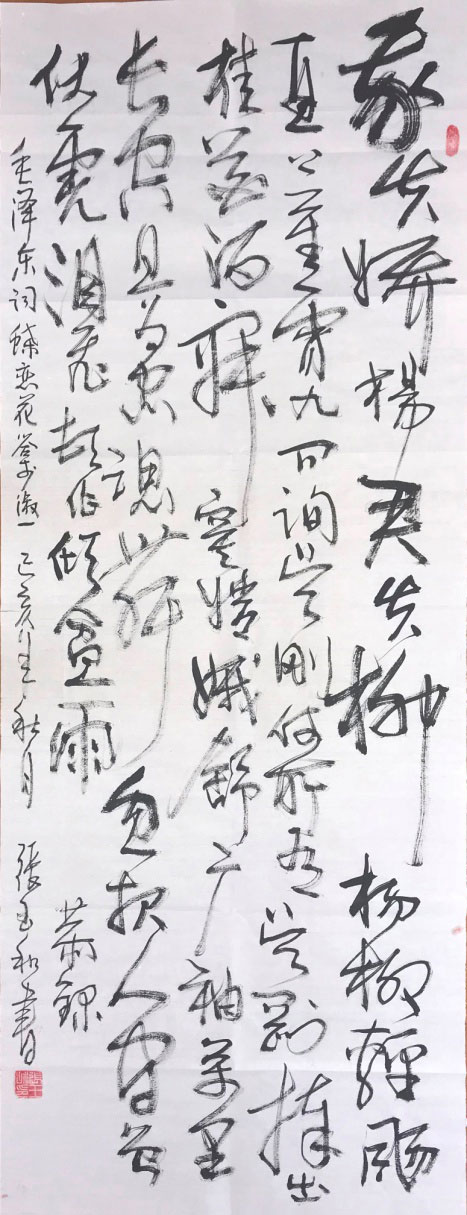 我失嬌楊君失柳杨柳輕飏
直上重霄九问询吴刚何所有吴刚捧出
桂花酒寂寞嫦娥舒广袖万里
长空且为忠魂舞忽报人间曾
伏虎泪飞顿作倾盆雨
毛泽东词蝶恋花答李淑一己亥年秋月 張玉和書